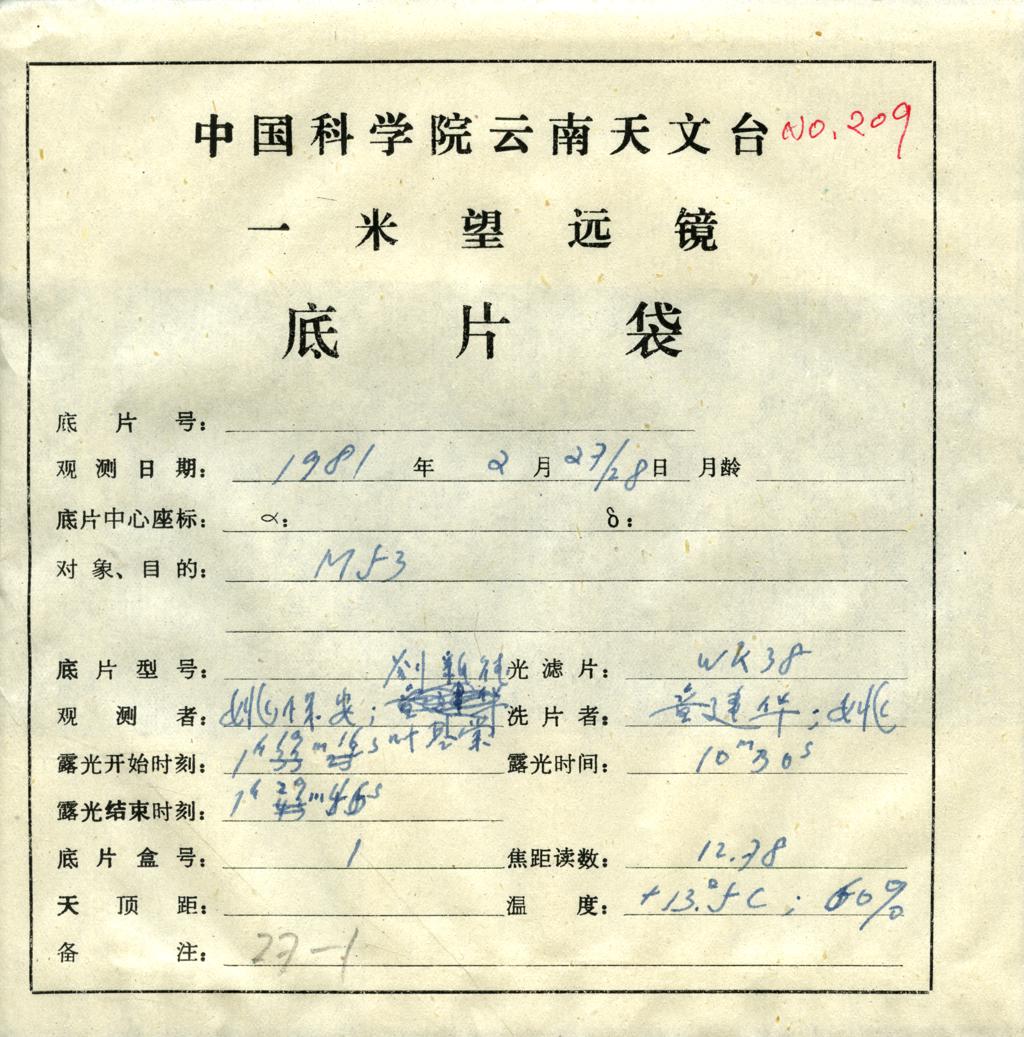 中国科学院云南天文台 NO.209
一米望远镜
底片袋
底片号：
观测日期： 1981 年 2 月 27/28 日 月龄
底片中心座标： α： δ：
对象、目的： M53
底片型号： 光滤片： WK38
观测者： 姚保安； 洗片者： 童建华；姚
露光开始时刻： 露光时间： 10m30s
露光结束时刻：
底片盒号： 1 焦距读数： 12.78
天顶距： 温度： +13.°5C； 60%
备注： 27-1